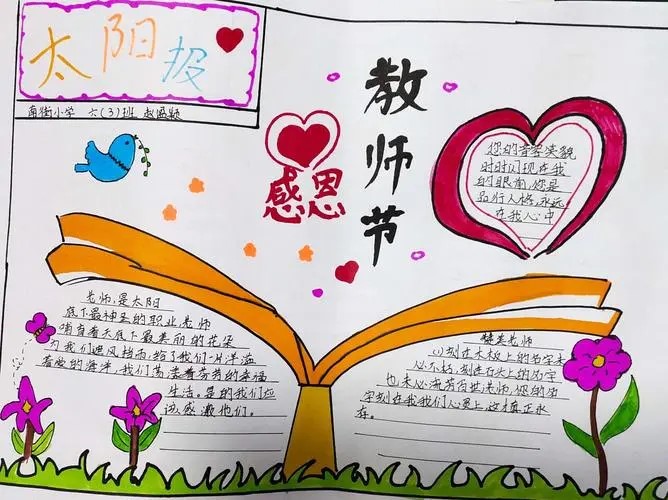 太阳报
南街小学 六(3)班 赵
感恩
教师节
您的音容笑貌
时时闪现在我
的眼前,您是
品行人格,永远
在我心中
老师,是太阳
底下最神圣的职业,老师
哺育着天底下最美丽的花朵
为我们遮风挡雨,给了我们一片洋溢
着爱的海洋,我们荡漾着芬芳的幸福
生活。是的我们应
该感激他们。
赞美老师
刻在木板上的名字未
必不朽,刻在石上的名字
也未必流芳百世,老师,您的名
字刻在我我们心灵上,这才真正永
存。